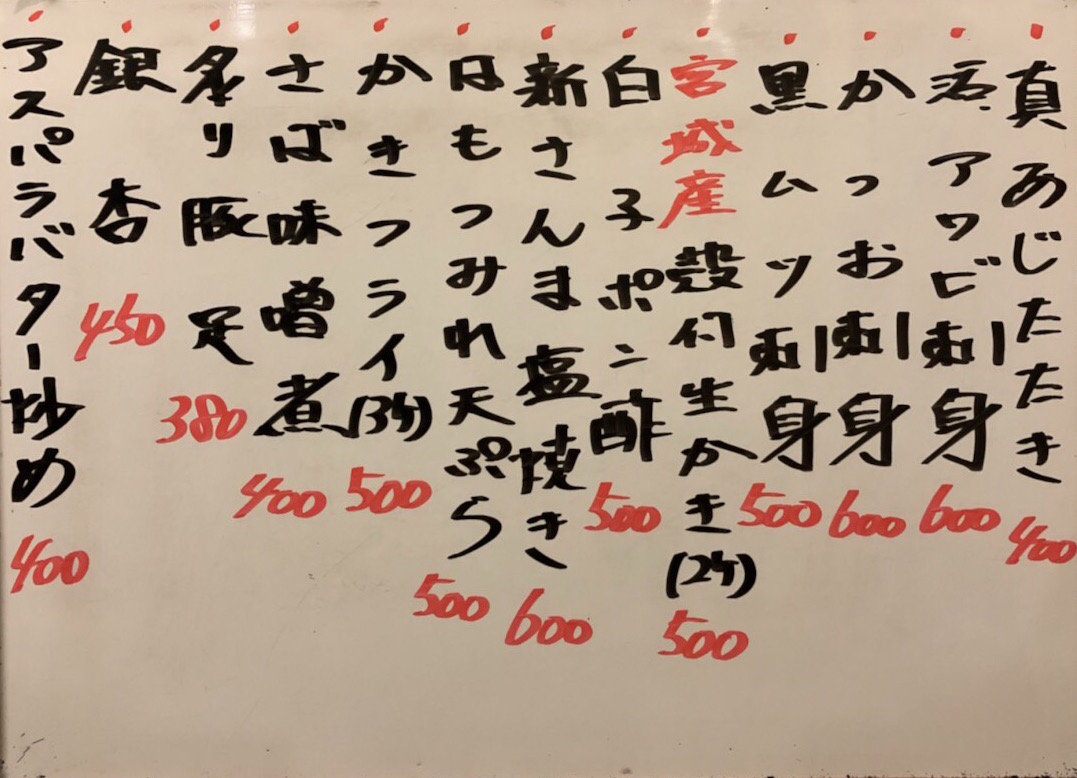 真あじたたき 400
活アワビ刺身 600
かつお刺身 600
黒ムツ刺身 500
宮城産殻付生かき(2ケ) 500
白子ポン酢 500
新さんま塩焼き 600
はもつみれ天ぷら 500
かきフライ(3ケ) 500
さば味噌煮 400
炙り豚足 380
銀杏 450
アスパラバター炒め 400